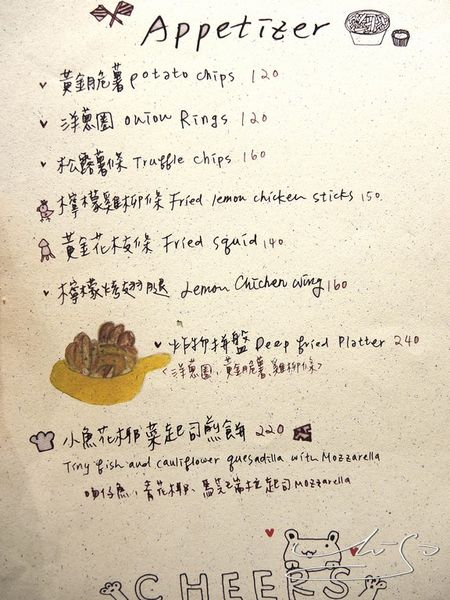 Appetizer
黃金脆薯 potato chips 120
洋蔥圈 onion Rings 120
松露薯條 Truffle chips 160
檸檬雞柳條 Fried lemon chicken sticks 150
黃金花枝條 Fried squid 140
檸檬烤翅腿 Lemon Chicken wing 160
炸物拼盤 Deep fried Platter 240
<洋蔥圈、黃金脆薯、雞柳條>
小魚花椰菜起司煎餅 220
Tiny fish and cauliflower quesadilla with Mozzarella
吻仔魚、青花椰、馬芝瑞拉起司 Mozzarella
CHEERS